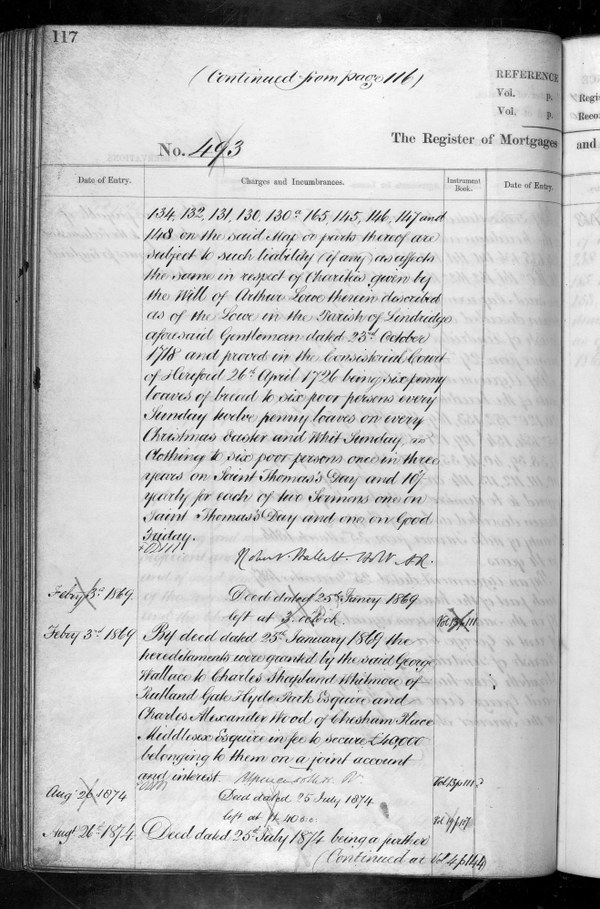 117
(Continued from page 116)
REFERENCE
Vol. p.
Vol. p.
No. 493
The Register of Mortgages
and
Date of Entry.
Charges and Incumbrances.
Instrument Book.
Date of Entry.
134, 132, 131, 130, 130a 165, 145, 146, 147 and
148 on the said Map or parts thereof are
subject to such liability (if any) as affects
the same in respect of Charities given by
the Will of Arthur Lowe therein described
as of the Lowe in the Parish of Lindridge
aforesaid Gentleman dated 23rd October
1718 and proved in the Consistorial Court
of Hereford 26th April 1726 being six penny
loaves of bread to six poor persons every
Sunday twelve penny loaves on every
Christmas Easter and Whit Sunday,
Clothing to six poor persons one in three
years on Saint Thomas's Day and 10/-
yearly for each of two Sermons one on
Saint Thomas's Day and one on Good
Friday.
Robert Hallett
Feby 3rd 1869
Deed dated 25th January 1869
left at 3. o'clock
Vol 13 p 111
Feby 3rd 1869
By deed dated 25th January 1869 the
hereditaments were granted by the said George
Wallace to Charles Shapland Whitmore of
Rutland Gate Hyde Park Esquire and
Charles Alexander Wood of Chesham Place
Middlesex Esquire in fee to secure £40,000
belonging to them on a joint account
and interest
Vol 13 p 111
Augt 26 1874
Deed dated 25 July 1874
left at
Vol 19 p
Augt 26th 1874
Deed dated 25th July 1874 being a further
(Continued at Vol 4 p 144)